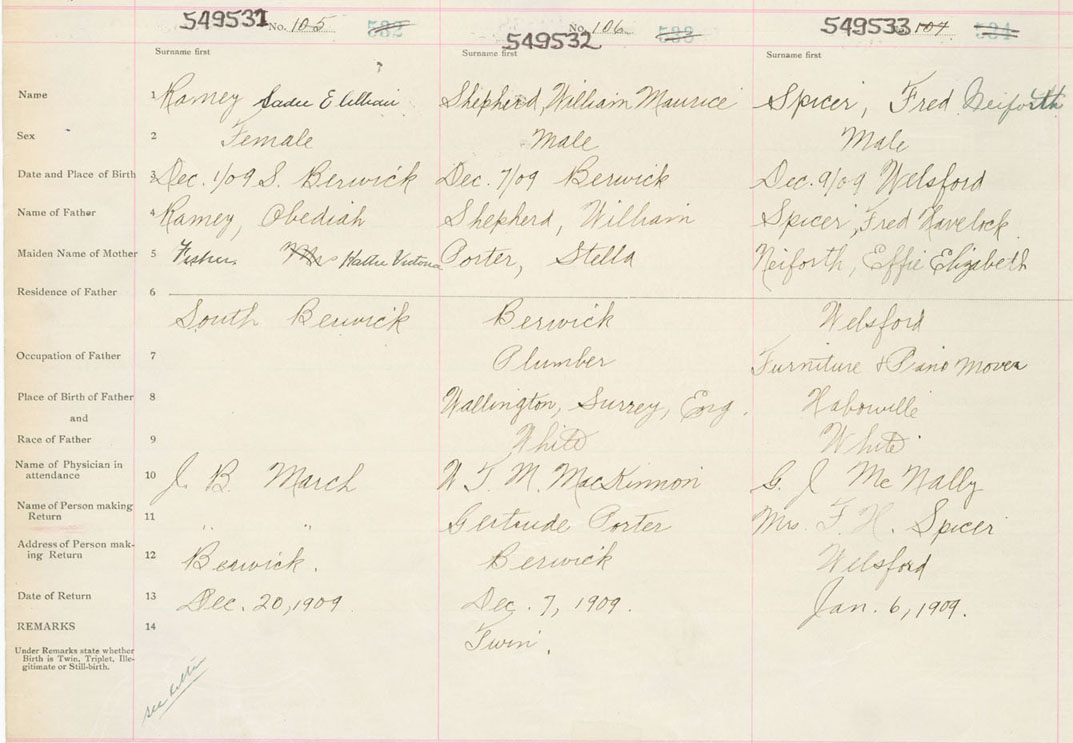 549531 No. 105 532
549532 No. 106 533
549533 107 534
Surname first Surname first Surname first
Name 1 Ramey Sadie E Lillian Shepherd, William Maurice Spicer, Fred Neiforth
Sex 2 Female Male Male
Date and Place of Birth 3 Dec. 1/09 S. Berwick Dec. 7/09 Berwick Dec. 9/09 Welsford
Name of Father 4 Ramey, Obediah Shepherd, William Spicer, Fred Havelock
Maiden Name of Mother 5 Fisher. Mrs Hattie Victoria Porter, Stella Neiforth, Effie Elizabeth
Residence of Father 6
South Berwick Berwick Welsford
Occupation of Father 7 Plumber Furniture & Piano Mover
Place of Birth of Father 8 Wallington, Surrey, Eng. 
and
Race of Father 9 White White
Name of Physician in
attendance 10 J. B. March W T. M. MacKinnon G. J McNally
Name of Person making
Return 11 " " Gertrude Porter Mrs. F. H. Spicer
Address of Person mak-
ing Return 12 Berwick. Berwick Welsford
Date of Return 13 Dec. 20, 1909. Dec. 7, 1909. Jan. 6, 1909.
REMARKS 14
Twin.
Under Remarks state whether
Birth is Twin, Triplet, Ille-
gitimate or Still-birth.
see letter